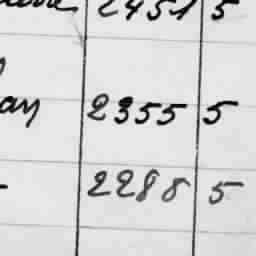 2451 5
ay 2355 5
2288 5